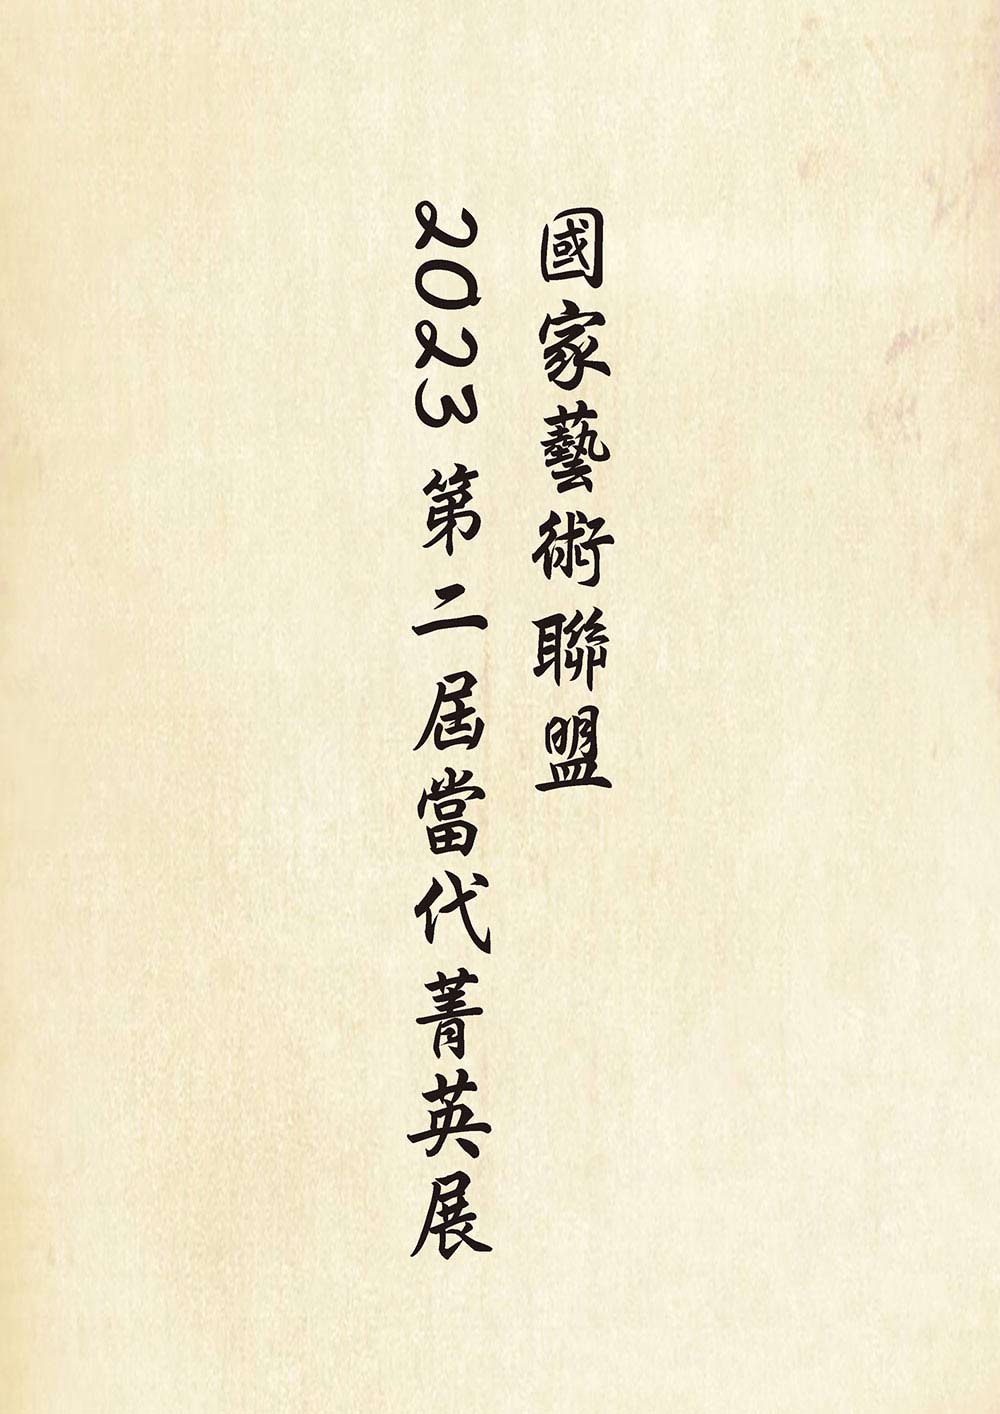 國家藝術聯盟
2023 第二屆當代菁英展